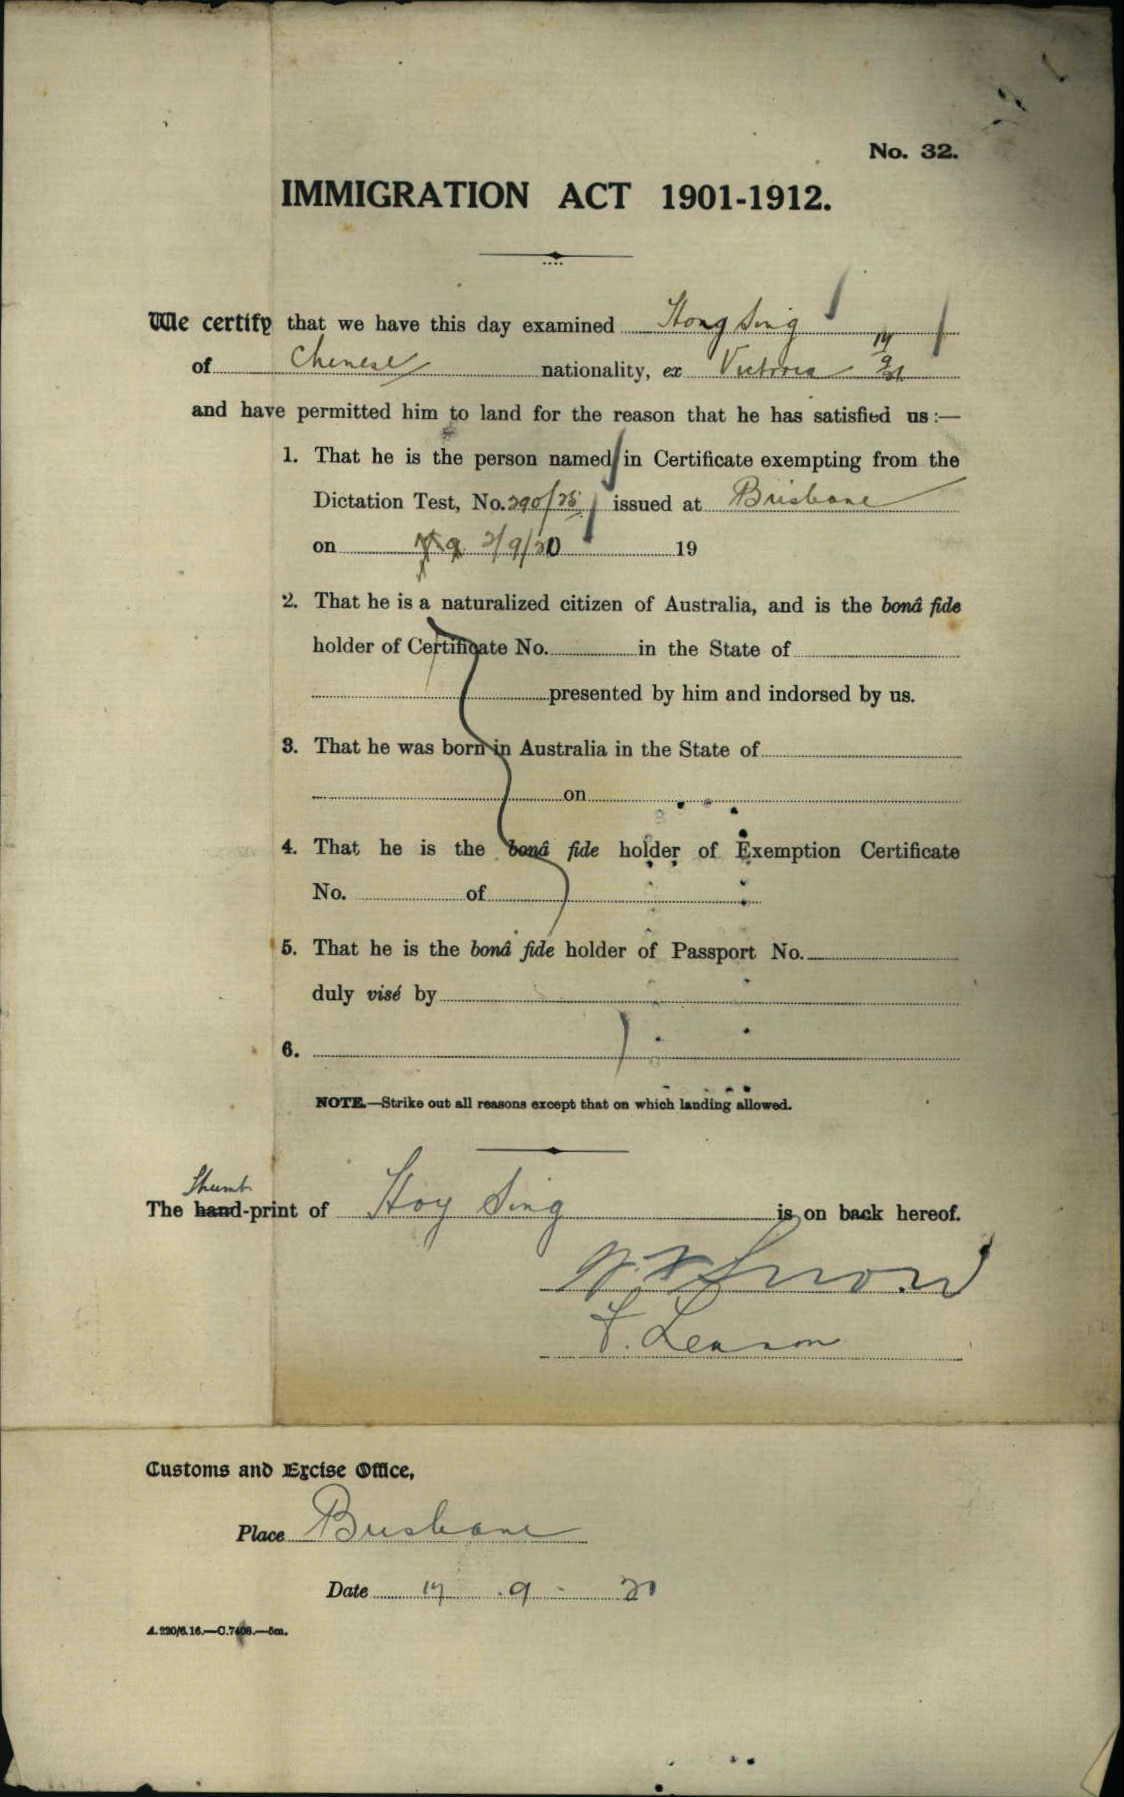 No. 32.
IMMIGRATION ACT 1901-1912.
We certify that we have this day examined Hong Sing
of Chinese nationality, ex Victoria 17/9/21
and have permitted him to land for the reason that he has satisfied us :—
1. That he is the person named in Certificate exempting from the
Dictation Test, No. 290/28 issued at Brisbane
on 2/9/20 19
2. That he is a naturalized citizen of Australia, and is the bonâ fide
holder of Certificate No. in the State of
presented by him and indorsed by us.
3. That he was born in Australia in the State of
on
4. That he is the bonâ fide holder of Exemption Certificate
No. of
5. That he is the bonâ fide holder of Passport No.
duly visé by
6.
NOTE.—Strike out all reasons except that on which landing allowed.
Thumb
The hand-print of Hoy Sing is on back hereof.
Snow
F. Lennon
Customs and Excise Office,
Place Brisbane
Date 17.9.21
A.220/6.16.—C.7408.—5m.